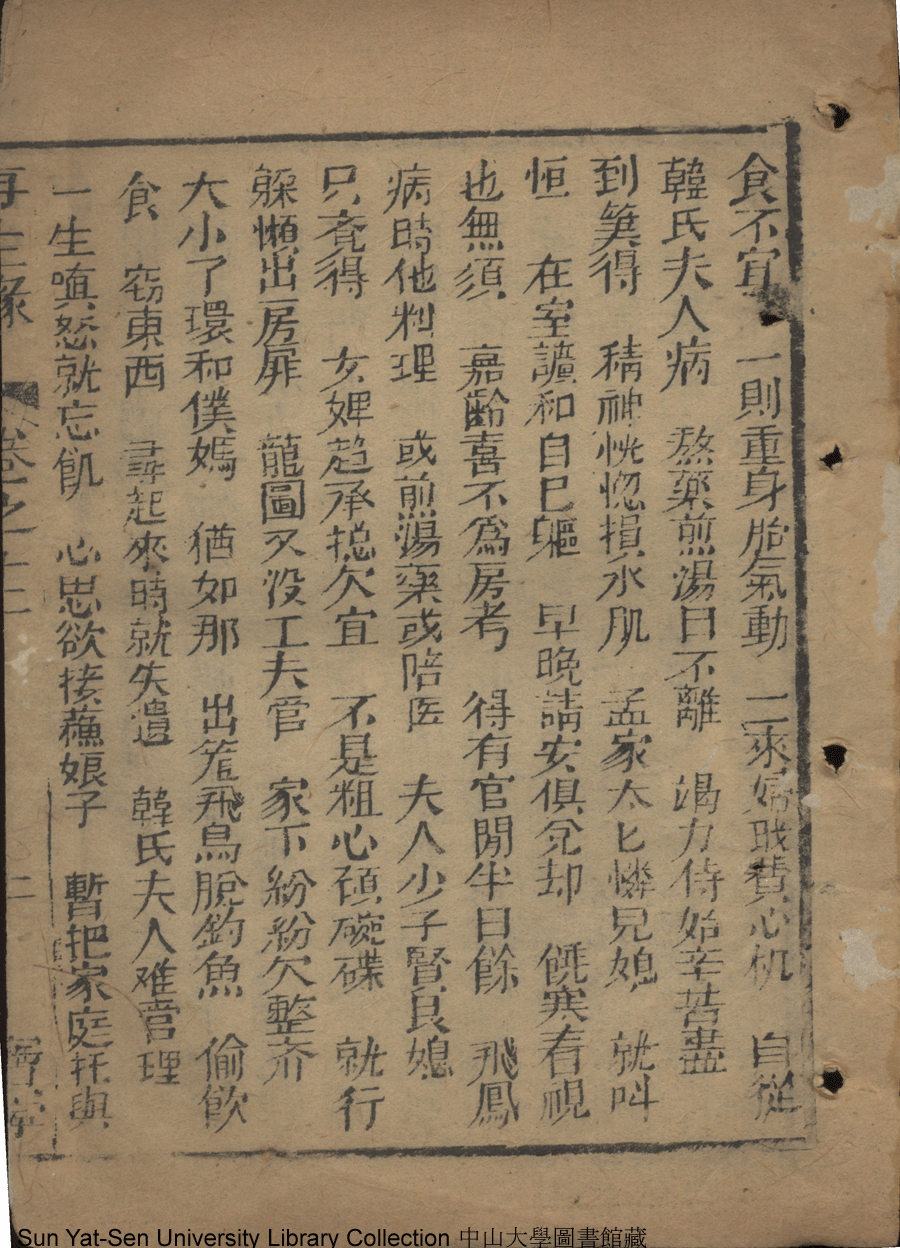 食不宜　一則重身胎氣動　二來婦職費心机　自從
韓氏夫人病　熬藥煎湯日不離　竭力侍姑辛苦盡
到筭得　精神恍惚損水肌　孟家太匕憐兒媳　就叫
恒　在室譩和自巳軀　早晚請安俱免却　飥寒看視
也無須　嘉齡喜不為房考　得有官閒半日餘　飛鳳
病時他料理　或煎湯藥或陪医　夫人少子賢良媳
只斉得　女婢趋承捴欠宜　不是粗心碩碗碟　就行
躲懶出房扉　龍圖又没工夫管　家下紛紛欠整齐
大小了環和僕媽　猶如那　出笼飛鳥脫釣魚　偷飲
食　窃東西　尋起來時就失遺　韓氏夫人难管理
一生嗔怒就忘飢　心思欲接蘓娘子　暫把家庭托與
再生緣　卷之十二　二
Sun Yat-Sen University Library Collection 中山大學圖書館藏